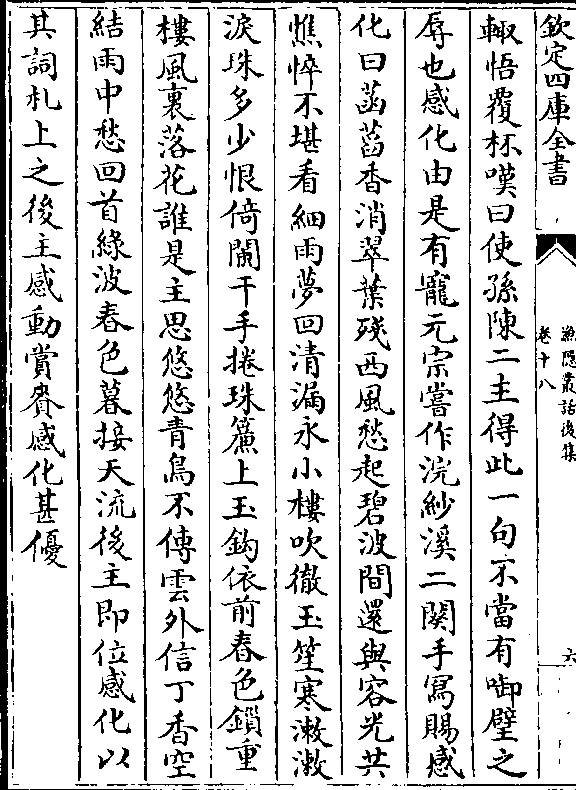 欽定四庫全書
漁隱叢話後集
卷十八
六
輙悟覆杯嘆曰使孫陳二主得此一句不當有啣璧之
辱也感化由是有寵元宗嘗作浣紗溪二闋手寫賜感
化曰菡萏香消翠葉殘西風愁起碧波間還與容光共
憔悴不堪看細雨夢回清漏永小樓吹徹玉笙寒漱漱
淚珠多少恨倚闌干手捲珠簾上玉鈎依前春色鎖重
樓風裏落花誰是主思悠悠青鳥不傳雲外信丁香空
結雨中愁回首綠波春色暮接天流後主即位感化以
其詞札上之後主感動賞賚感化甚優